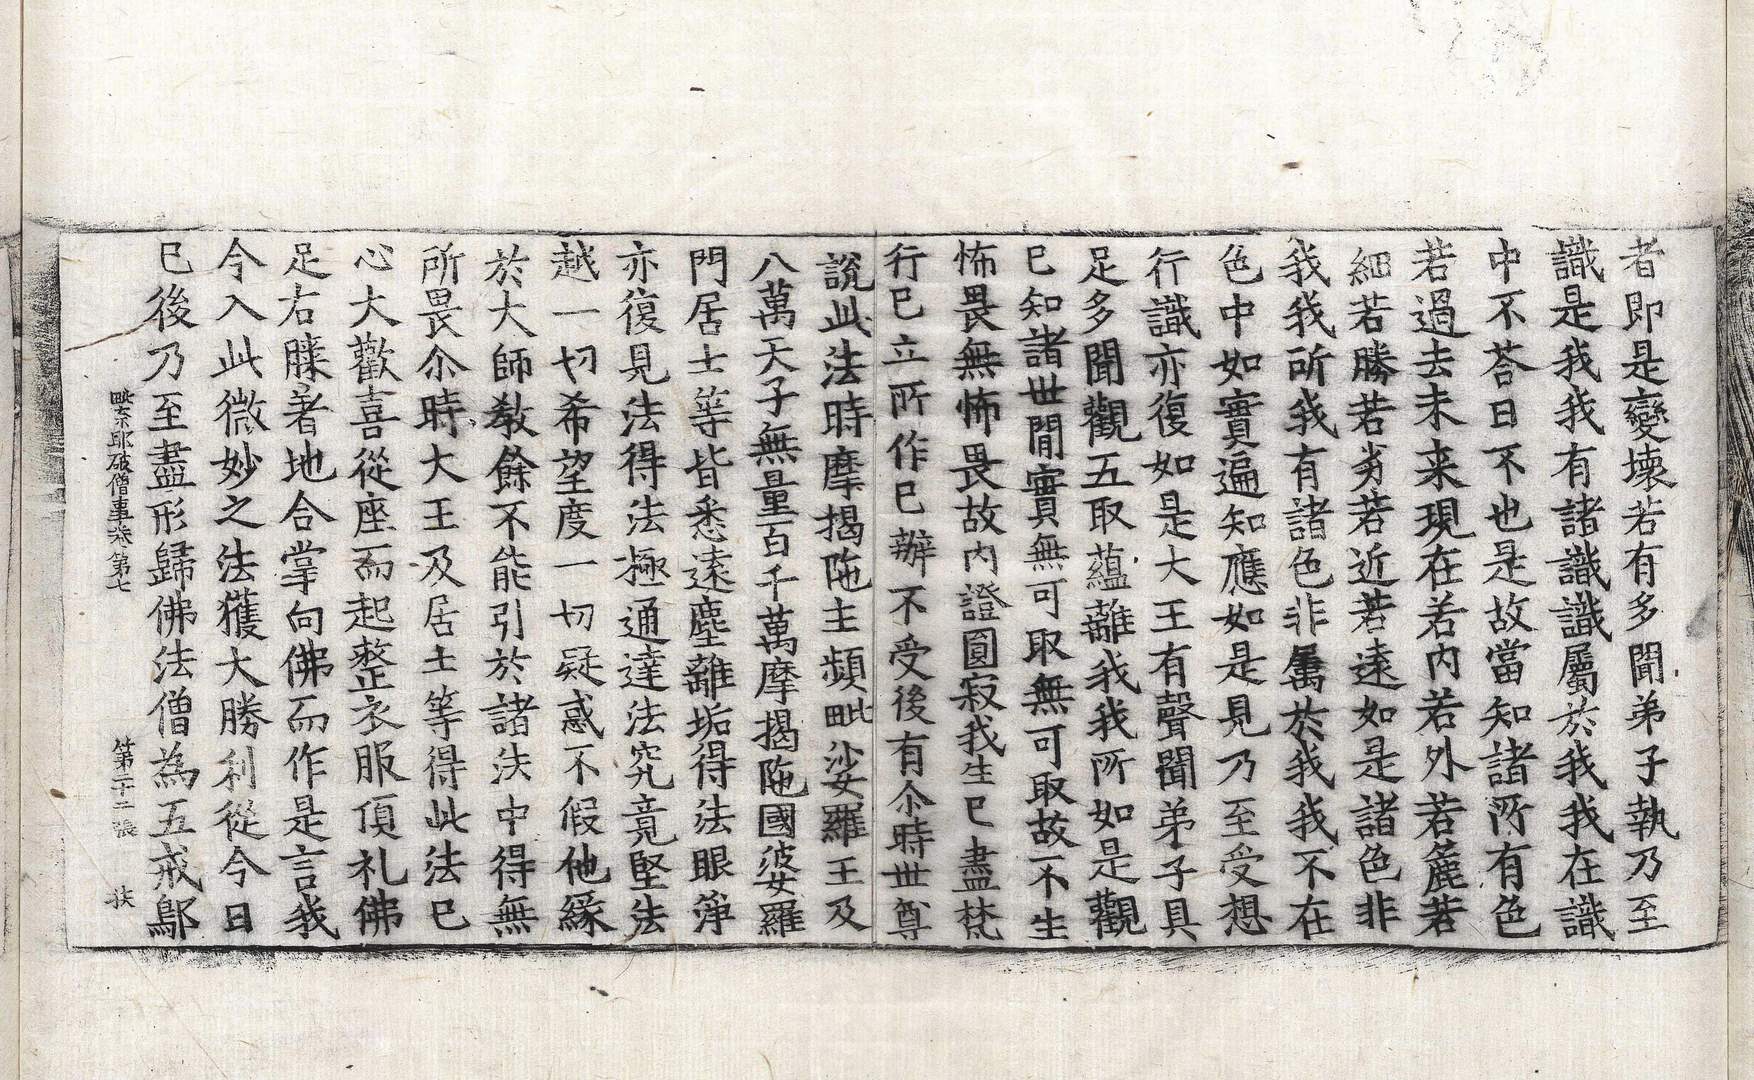 者即是變壞若有多聞弟子執乃至
識是我我有諸識識屬於我我在識
中不荅曰不也是故當知諸所有色
若過去未来現在若内若外若麁若
細若勝若劣若近若遠如是諸色非
我我所我有諸色非屬於我我不在
色中如實遍知應如是見乃至受想
行識亦復如是大王有聲聞弟子具
足多聞觀五取蘊離我我所如是觀
已知諸世間實無可取無可取故不生
怖畏無怖畏故内證圓寂我生已盡梵
行已立所作已辦不受後有尒時世尊
說此法時摩揭陁主頻毗娑羅王及
八萬天子無量百千萬摩揭陁國婆羅
門居士等皆悉遠塵離垢得法眼淨
亦復見法得法極通達法究竟堅法
越一切希望度一切疑惑不假他緣
於大師教餘不能引於諸法中得無
所畏尒時大王及居士等得此法已
心大歡喜從座而起整衣服頂礼佛
足右膝著地合掌向佛而作是言我
今入此微妙之法獲大勝利從今日
已後乃至盡形歸佛法僧為五戒鄔
毗奈耶破僧事卷第七 第二十二張 扶